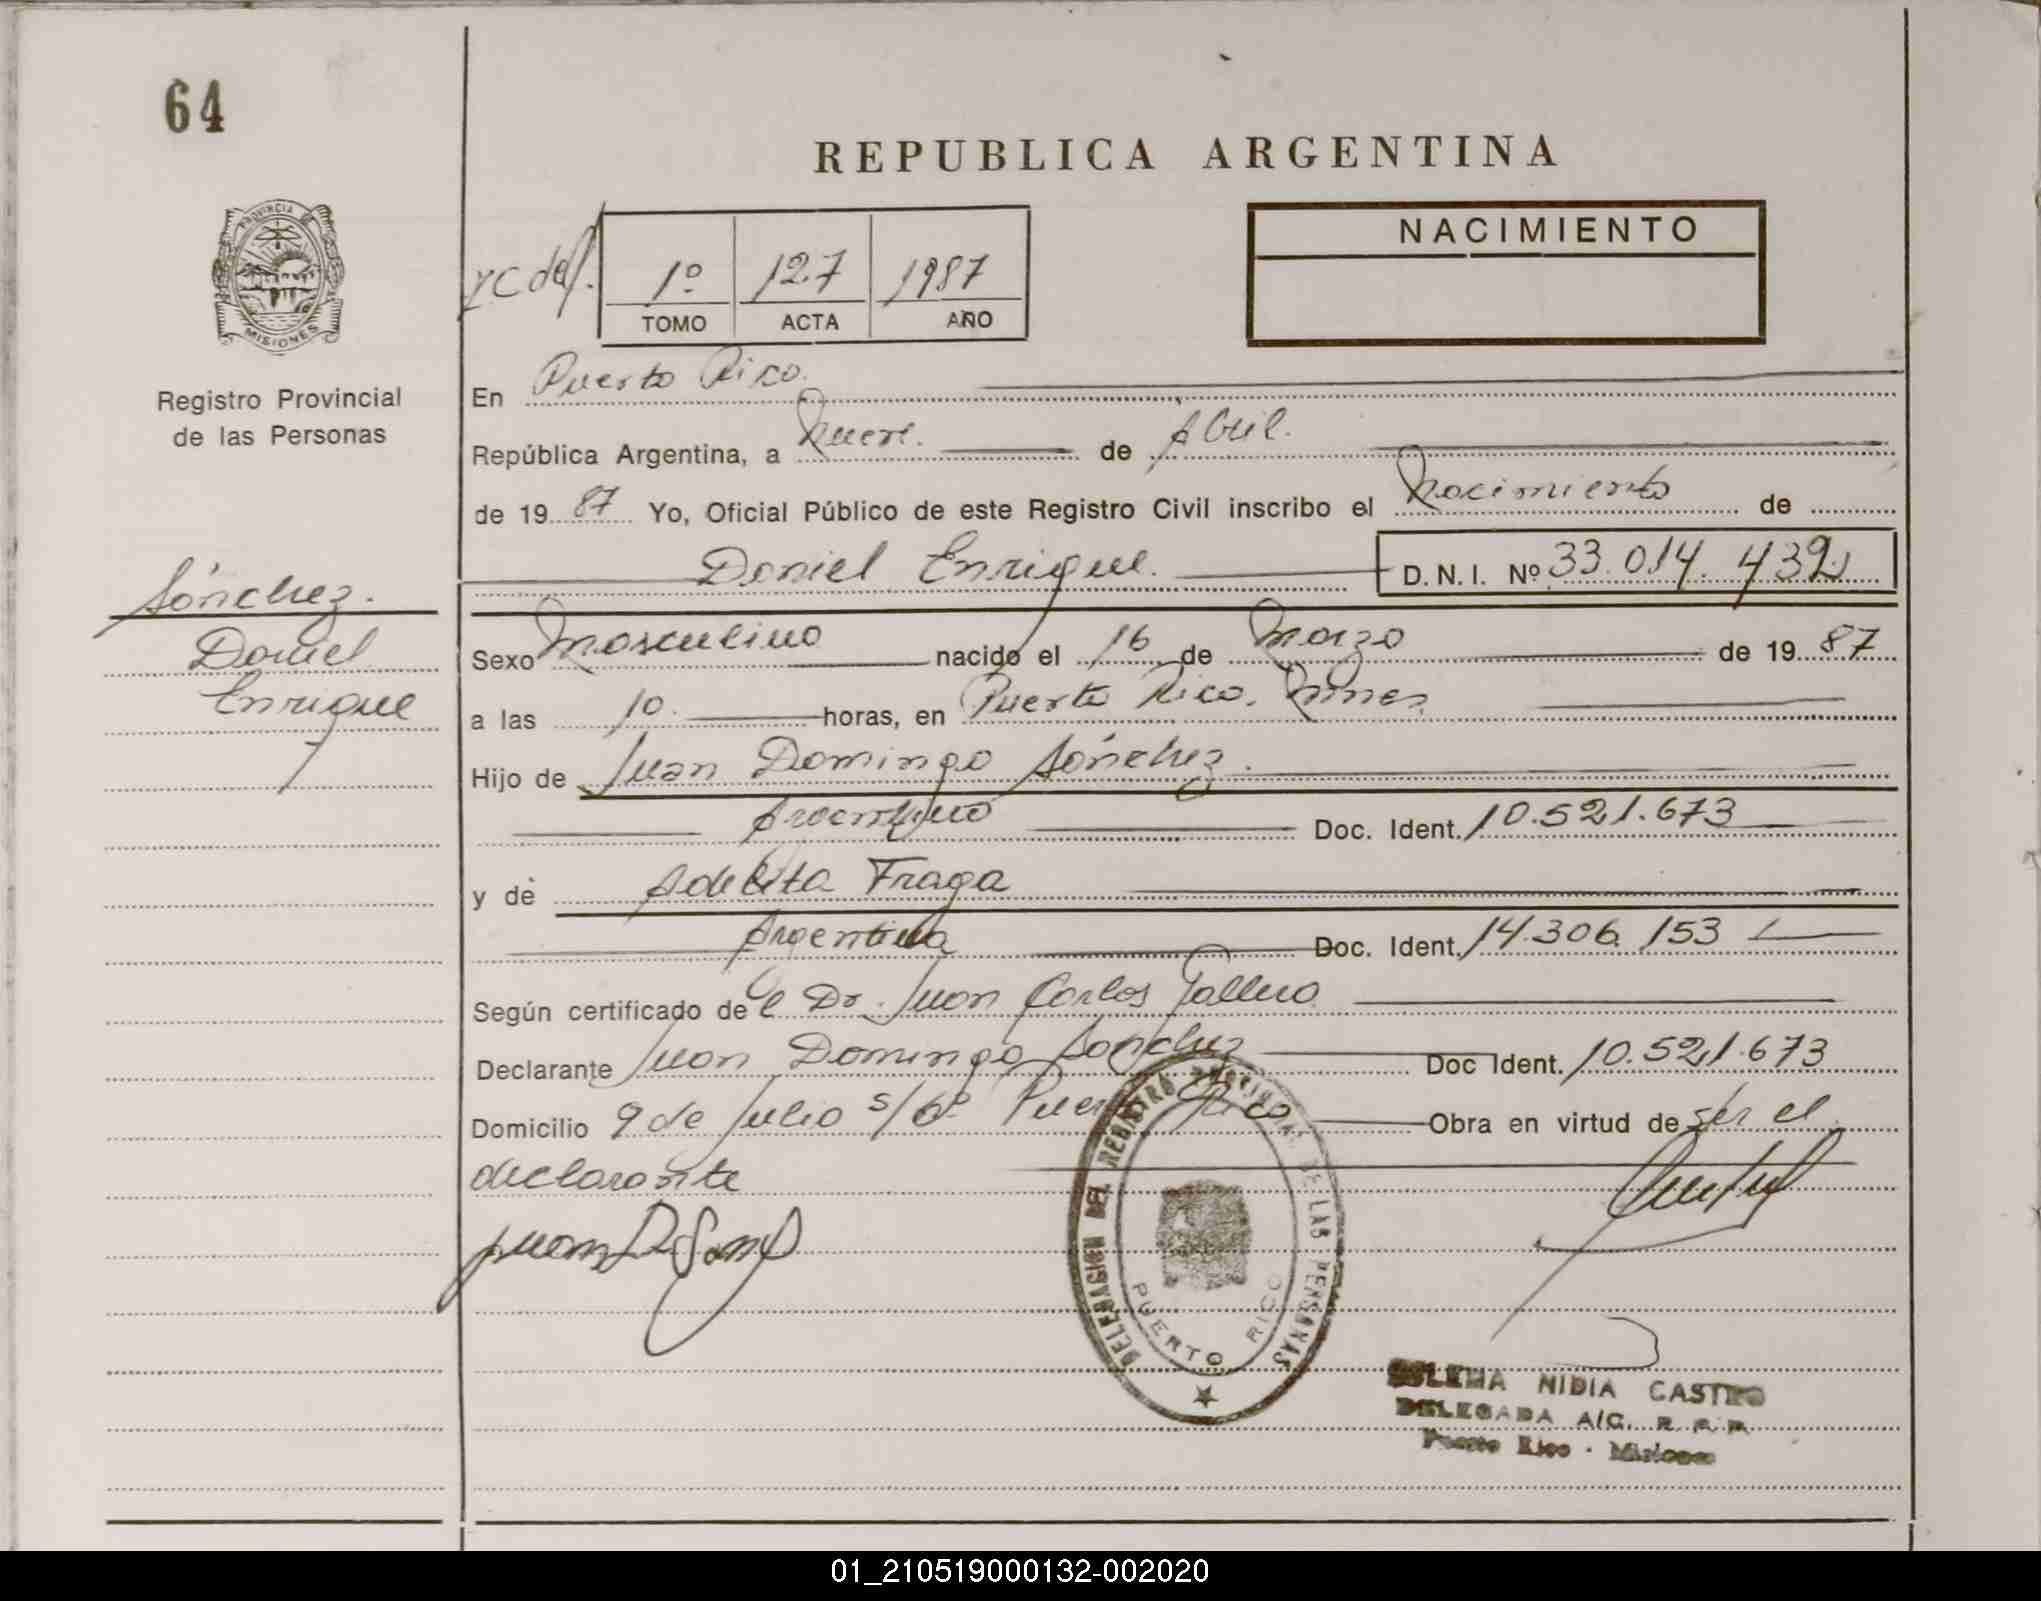 64
REPUBLICA ARGENTINA
PROVINCIA DE
MISIONES
Registro Provincial
de las Personas
1º 127 1987
TOMO ACTA AÑO
NACIMIENTO
En Puerto Rico.
República Argentina, a Nueve. de Abril.
de 1987 Yo, Oficial Público de este Registro Civil inscribo el Nacimiento de
Daniel Enrique. D.N.I. Nº 33.014.432
Sánchez.
Daniel
Enrique
Sexo Masculino nacido el 16 de Marzo de 1987
a las 10. horas, en Puerto Rico. Mnes.
Hijo de Juan Domingo Sánchez.
Argentino Doc. Ident. 10.521.673
y de Adelita Fraga
Argentina Doc. Ident. 14.306.153
Según certificado del Dr. Juan Carlos
Declarante Juan Domingo Sánchez Doc Ident. 10.521.673
Domicilio 9 de Julio s/6º Puerto Rico Obra en virtud de ser el
declarante
DELEGACION DEL REGISTRO PROVINCIAL DE LAS PERSONAS
PUERTO RICO
NIDIA CASTRO
DELEGADA A/C. R. P. P.
Puerto Rico - Misiones
01_210519000132-002020